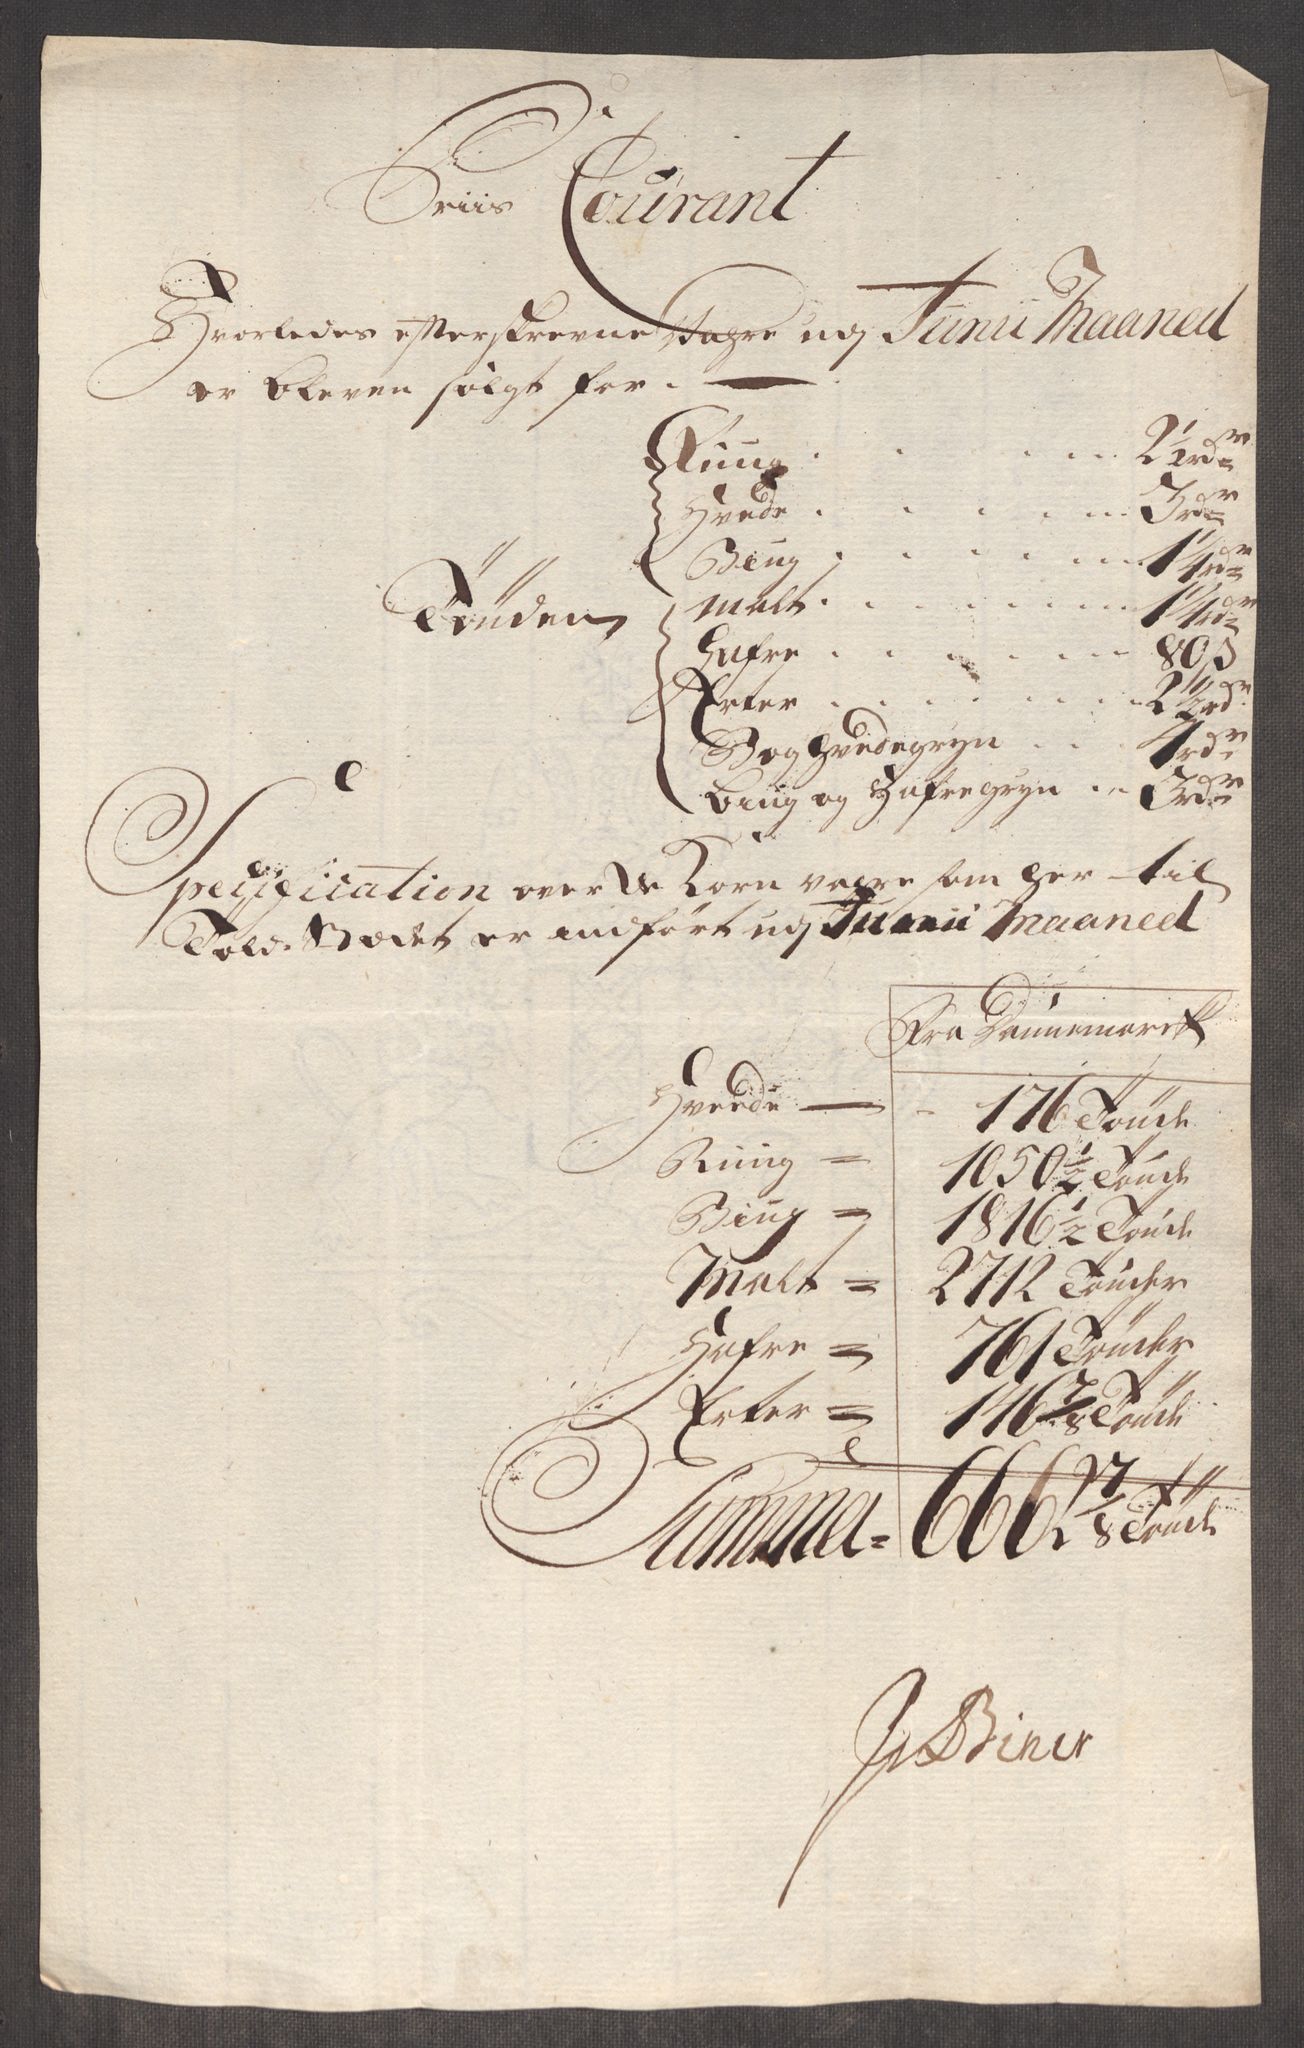 Priis Courant
Hvorledes efterskrefne Vahre udj Junii Maaned
er bleven solgt for.
Tönden
Ruug 2 1/2 rdr
Hvede 3 rdr
Biug 1 1/4 rdr
Malt 1 1/4 rdr
Hafre 80 ß
Erter 2 1/2 rdr
Boghvedegryn 4 rdr
biug og Hafregryn 3 rdr
Specification over de Korn vahre som her til
Told-Stædet er indfört udj Junii Maaned
Fra Dannemarck
Hveede 176 Tönde
Ruug = 1050 1/2 Tönde
Biug = 1816 1/2 Tönde
Malt = 2712 Tönder
Hafre = 761 Tönder
Erter = 146 7/8 Tönde
Summa = 6662 7/8 Tönde
Biner